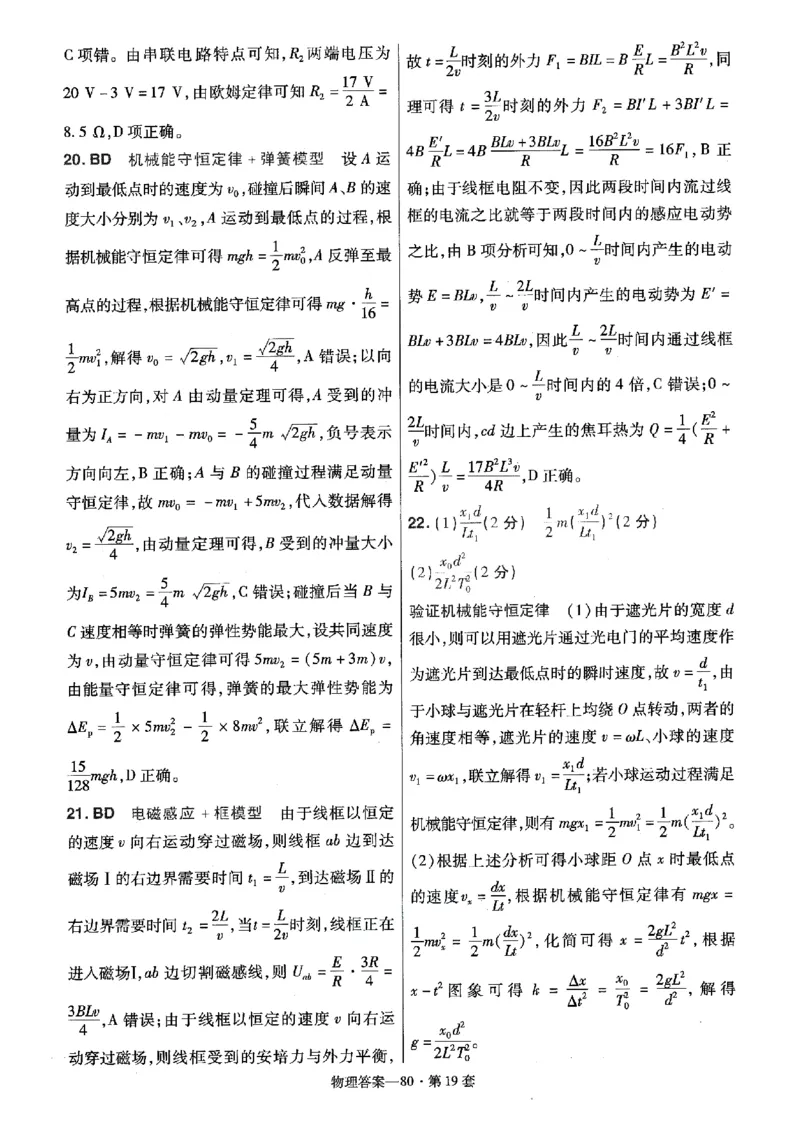 C项错。由串联电路特点可知,R₂两端电压为
20 V-3 V=17 V,由欧姆定律可知 R₂=17 V/2 A=
8.5 Ω,D项正确。
20. BD 机械能守恒定律+弹簧模型 设A运
动到最低点时的速度为v₀,碰撞后瞬间A、B的速
度大小分别为v₁、v₂,A运动到最低点的过程,根
据机械能守恒定律可得mgh=1/2mv₀²,A反弹至最
高点的过程,根据机械能守恒定律可得mg·h/16=
1/2mv₁²,解得v₀=√2gh,v₁=√2gh/4,A错误;以向
右为正方向,对A由动量定理可得,A受到的冲
量为I_A=-mv₁-mv₀=-5/4m√2gh,负号表示
方向向左,B正确;A与B的碰撞过程满足动量
守恒定律,故mv₀=-mv₁+5mv₂,代入数据解得
v₂=√2gh/4,由动量定理可得,B受到的冲量大小
为I_B=5mv₂=5/4m√2gh,C错误;碰撞后当B与
C速度相等时弹簧的弹性势能最大,设共同速度
为v,由动量守恒定律可得5mv₂=(5m+3m)v,
由能量守恒定律可得,弹簧的最大弹性势能为
ΔE_p=1/2×5mv₂²-1/2×8mv²,联立解得ΔE_p=
15/128mgh,D正确。
21. BD 电磁感应+框模型 由于线框以恒定
的速度v向右运动穿过磁场,则线框ab边到达
磁场Ⅰ的右边界需要时间t₁=L/v,到达磁场Ⅱ的
右边界需要时间t₂=2L/v,当t=L/2v时刻,线框正在
进入磁场Ⅰ,ab边切割磁感线,则U_ab=E/R·3R/4=
3BLv/4,A错误;由于线框以恒定的速度v向右运
动穿过磁场,则线框受到的安培力与外力平衡,
故t=L/2v时刻的外力F₁=BIL=BE/RL=B²L²v/R,同
理可得t=3L/2v时刻的外力F₂=BI′L+3BI′L=
4BE′/RL=4B(BLv+3BLv)/RL=16B²L²v/R=16F₁,B正
确;由于线框电阻不变,因此两段时间内流过线
框的电流之比就等于两段时间内的感应电动势
之比,由B项分析可知,0~L/v时间内产生的电动
势E=BLv,L/v~2L/v时间内产生的电动势为E′=
BLv+3BLv=4BLv,因此L/v~2L/v时间内通过线框
的电流大小是0~L/v时间内的4倍,C错误;0~
2L/v时间内,cd边上产生的焦耳热为Q=1/4(E²/R+
E′²/R)L/v=17B²L³v/4R,D正确。
22. (1)x₁d/Lt₁(2分) 1/2m(x₁d/Lt₁)²(2分)
(2)x₀d²/2L²T₀²(2分)
验证机械能守恒定律 (1)由于遮光片的宽度d
很小,则可以用遮光片通过光电门的平均速度作
为遮光片到达最低点时的瞬时速度,故v=d/t₁,由
于小球与遮光片在轻杆上均绕O点转动,两者的
角速度相等,遮光片的速度v=ωL、小球的速度
v₁=ωx₁,联立解得v₁=x₁d/Lt₁;若小球运动过程满足
机械能守恒定律,则有mgx₁=1/2mv₁²=1/2m(x₁d/Lt₁)²。
(2)根据上述分析可得小球距O点x时最低点
的速度vₓ=dx/Lt,根据机械能守恒定律有mgx=
1/2mvₓ²=1/2m(dx/Lt)²,化简可得x=2gL²/d²t²,根据
x-t²图象可得k=Δx/Δt²=x₀/T₀²=2gL²/d²,解得
g=x₀d²/2L²T₀²。
物理答案—80·第19套